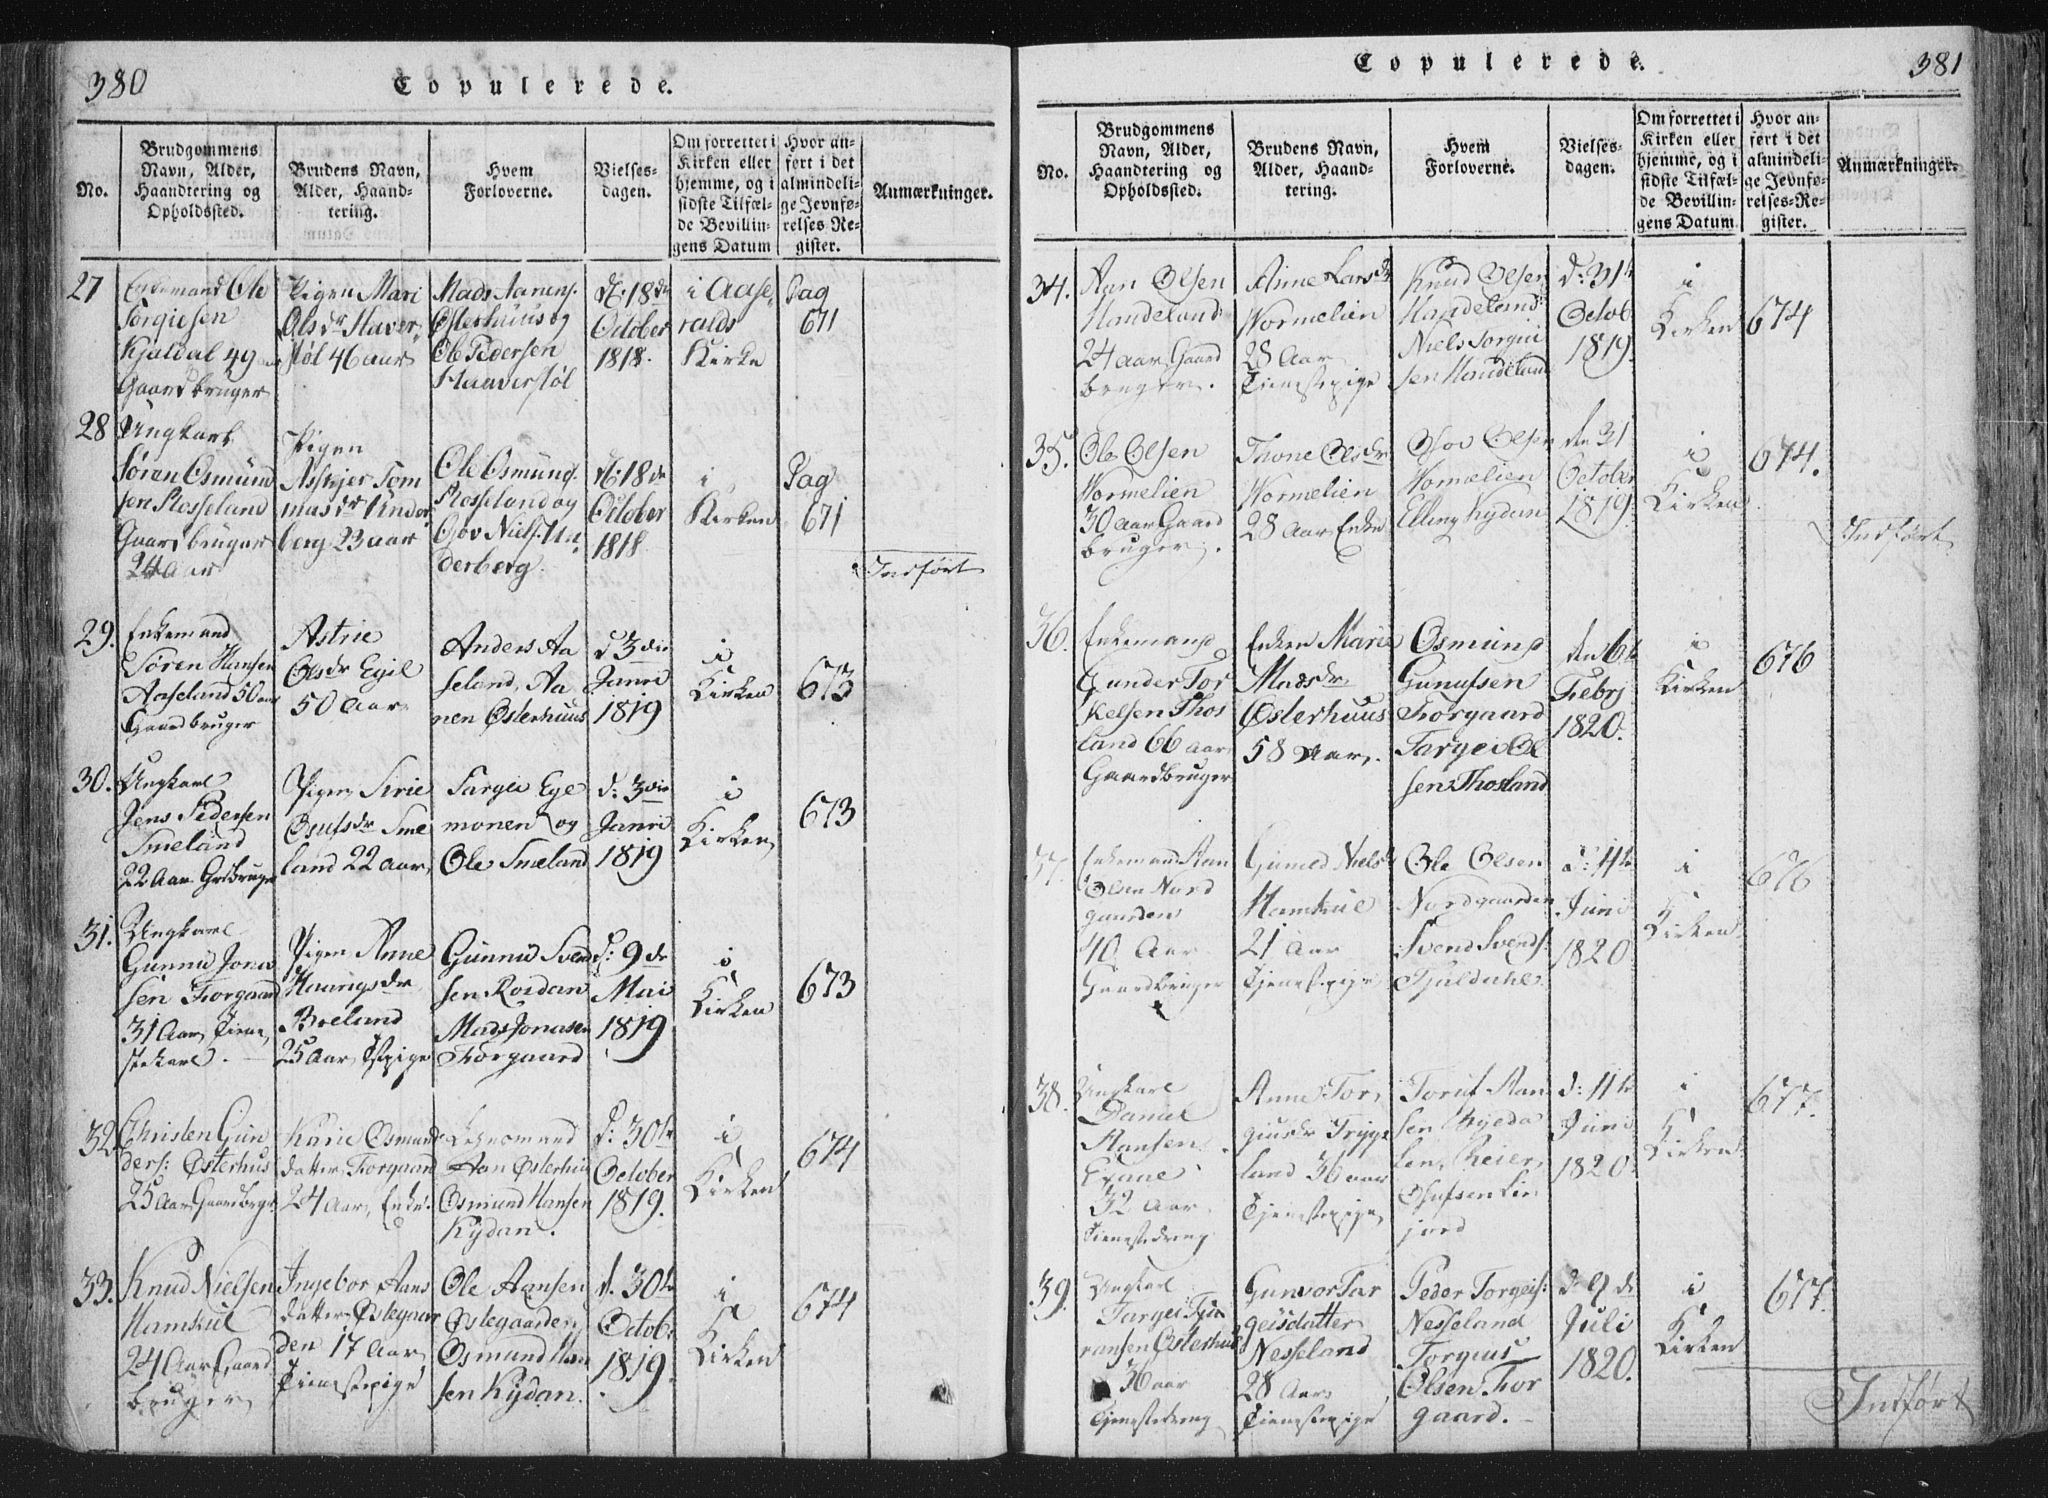 380
Copulerede.
No.
Brudgommens
Navn, Alder,
Haandtering og
Opholdssted.
Brudens Navn,
Alder, Haand-
tering.
Hvem
Forloverne.
Vielses-
dagen.
Om forrettet i
Kirken eller
hjemme, og i
sidste Tilfæl-
de Bevillin-
gens Datum
Hvor an-
ført i det
almindeli-
ge Jevnfø-
relses-Re-
gister.
Anmærkninger.
27
Enkemand Ole
Torgiesen
Kjaldal 49
Gaardbruger
Pigen Mari
Olsdr Haver
støl 46 aar
Mads Aanens.
Østerhuus og
Ole Pedersen
Haaverstøl
d. 18de
October
1818.
i Aase
ralds
Kirke
Pag
671
28
Ungkarl
Søren Osmund
sen Røsseland
Gaardbruger
24 Aar
Pigen
Asbjer Tom
masdr Under
berg 23 aar
Ole Osmunds.
Røsseland og
Osov Niels. Un
derberg.
d. 18de
October
1818
i
Kirken
Pag
671
Indført
29.
Enkemand
Søren Hansen
Aaseland 50 aar
Gaardbruger
Astrie
Olsdr Egil
50 Aar
Anders Aa
seland, Aa
nen Østerhuus
d 3die
Janri
1819
i
Kirken
673
30.
Ungkarl
Jens Pedersen
Smeland
22 Aar Grdbruger
Pigen Sirie
Osufsdr Sme
land 22 aar
Targei Ege
monen og
Ole Smeland
d: 3die
Janri
1819
i
Kirken
673
31.
Ungkarl
Gunnu Jona
sen Torgaard
31 Aar, Tiene
stekarl.
Pigen Anne
Haaingsdr
Boeland
25 Aar, Tstpige
Gunnu Svend
sen Roidan
Mads Jonasen
Torgaard
d: 9de
Mai
1819
i
Kirken
673
32
Christen Gun
ders: Østerhus
25 Aar, Gaardbrgr.
Karie Osmunds
datter Torgaard
24 Aar, Enke.
Aan Østerhuus
Osmund Hansen
Kydan.
d: 30te
October
1819.
i
Kirken
674
33.
Knud Nielsen
Hamkul
24 Aar, Gaard
bruger
Ingebor Aans
datter Østegaar
den 17 Aar
Tienestepige
Ole Aansen
Østegaarden
Osmund Han
sen Kydan.
d. 30te
Octob:
1819.
i
Kirken
674
Copulerede.
381
No.
Brudgommens
Navn, Alder,
Haandtering og
Opholdssted.
Brudens Navn,
Alder, Haand-
tering.
Hvem
Forloverne.
Vielses-
dagen.
Om forrettet i
Kirken eller
hjemme, og i
sidste Tilfæl-
de Bevillin-
gens Datum.
Hvor an-
ført i det
almindeli-
ge Jevnfø-
relses-Re-
gister.
Anmærkninger.
34.
Aan Olsen
Handeland
24 aar, Gaard
bruger.
Anne Larsdr
Wormelien
28 Aar
Tienestepige
Knud Olsen
Handeland
Niels Torgui
sen Handeland
d: 31te
Octob
1819.
i
Kirken
674
35.
Ole Olsen
Wormelien
30 aar Gaard
bruger.
Thone Olsdr
Wormelien
28 Aar Enke
Osov Olsen
Wormelien
Elling Kydan
den 31
October
1819.
i
Kirken
674.
Indført
36.
Enkemand
Gunder Tor
kelsen Thos
land 66 aar
Gaardbruger
Enken Marie
Madsdr
Østerhuus
58 Aar.
Osmund
Gunufsen
Torgaard
Targei Ol
sen Thosland
den 6te
Febrj
1820.
i
Kirken
676
37.
Enkemand Aan
Olsen Nord
gaarden
40 Aar
Gaardbruger
Gunild Nielsdr
Hamkul
21 Aar
Tjenestepige
Ole Olsen
Nordgaarden
Svend Svends:
Tjuldahl
d: 4te
Juni
1820
i
Kirken
676
38.
Ungkarl
Daniel
Hansen
32 Aar
Tienestedreng
Anne Tor
giusdr Trygs
land 36 aar
Tjenestepige
Toruf Aan
sen
Reier
Osufsen Lin
jord
d: 4te
Juni
1820.
i
Kirken
677.
39.
Ungkarl
Targei Tju
ransen Østerhus
36 aar
Tjenestedreng
Gunvor Tar
geisdatter
Nesseland
28 Aar
Tienestepige
Peder Torgeis:
Nesseland
Torgius
Olsen Tor
gaard.
d. 9de
Juli
1820.
i
Kirken
677.
Indført